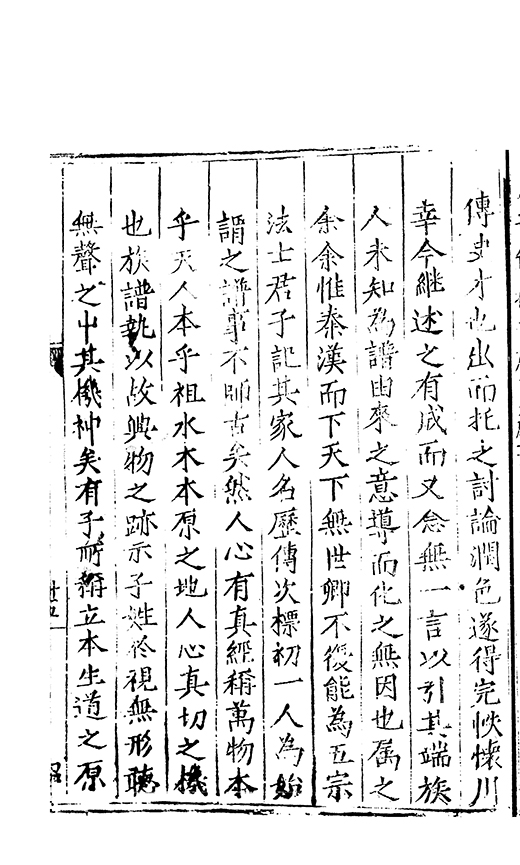 傳史才也出而托之討論潤色遂得完帙懷川
幸今継述之有成而又念無一言以引其端族
人未知為譜由來之意導而化之無因也属之
余余惟秦漢而下天下無世卿不復能為五宗
法士君子記其家人名歷傳次標初一人為始
謂之譜事不師古矣然人心有真經稱萬物本
乎天人本乎祖水木本原之地人心真切之機
也族譜執以故興物之跡示子姓於視無形聴
無聲之中其機神矣有子所稱立本生道之原
廿五